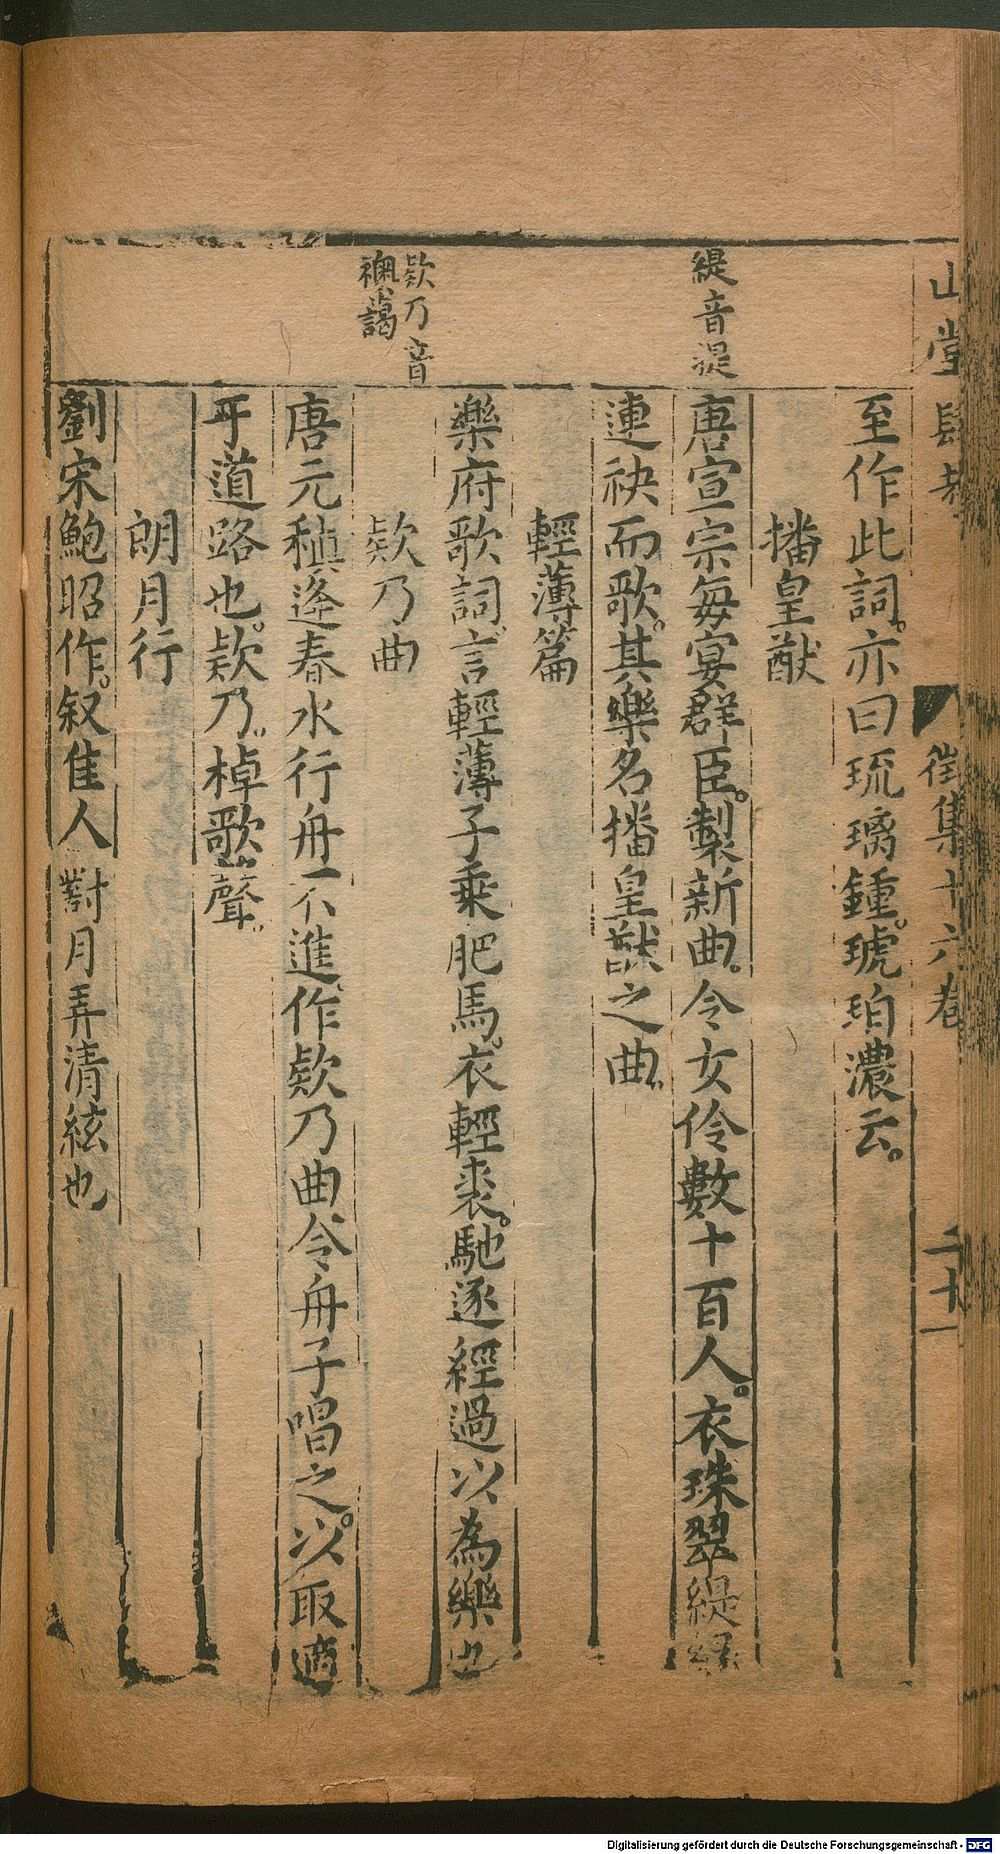 山堂肆考
徵集十六卷
二十一
至作此詞。亦曰琉璃鍾。琥珀濃云。
播皇猷
緹音提
唐宣宗每宴群臣。製新曲。令女伶數十百人。衣珠翠緹繡
連袂而歌。其樂名播皇猷之曲。
輕薄篇
樂府歌詞。言輕薄子乗肥馬。衣輕裘。馳逐經過以為樂也
欵乃音
襖靄
欵乃曲
唐元稹逢春水行舟不進。作欵乃曲令舟子唱之。以取適
乎道路也。欵乃。棹歌聲。
朗月行
劉宋鮑昭作。叙隹人對月弄清絃也
Digitalisierung gefördert durch die Deutsche Forschungsgemeinschaft - DFG